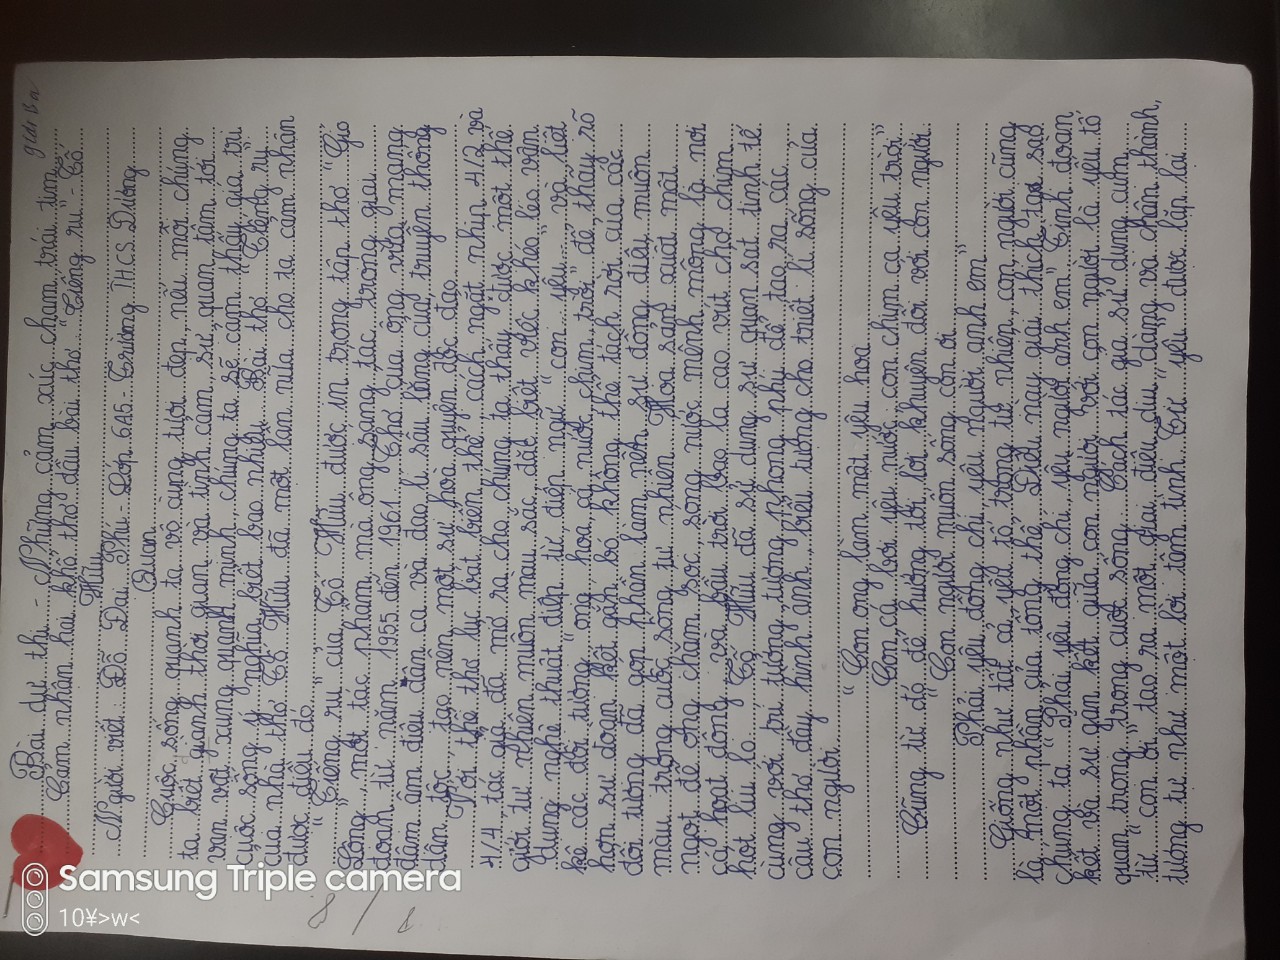 giải Ba
Bài dự thi - Những cảm xúc chạm trái tim
Cảm nhận hai khổ thơ đầu bài thơ "Tiếng ru" - Tố
Hữu
Người viết: Đỗ Đại Phú - Lớp 6A5 - Trường THCS Dương
Quan
Cuộc sống quanh ta vô cùng tươi đẹp, nếu mỗi chúng
ta biết giành thời gian và tình cảm sự quan tâm tới
vạn vật xung quanh mình, chúng ta sẽ cảm thấy giá trị
cuộc sống ý nghĩa biết bao nhiêu. Bài thơ "Tiếng ru"
của nhà thơ Tố Hữu đã một lần nữa cho ta cảm nhận
được điều đó.
"Tiếng ru" của Tố Hữu được in trong tập thơ "Gió
Lộng", một tác phẩm mà ông sáng tác trong giai
đoạn từ năm 1955 đến 1961. Thơ của ông vừa mang
đậm âm điệu dân ca và đạo lí sâu lắng của truyền thống
dân tộc, tạo nên một sự hoà quyện độc đáo.
Với thể thơ lục bát biến thể, cách ngắt nhịp 4/2 và
4/4, tác giả đã mở ra cho chúng ta thấy được một thế
giới tự nhiên muôn màu sắc, đặc biệt việc khéo léo vận
dụng nghệ thuật điệp từ, điệp ngữ "con, yêu" và liệt
kê các đối tượng "ong, hoa, cá, nước, chim, trời" để thấy rõ
hơn sự đoàn kết gắn bó, không thể tách rời của các
đối tượng đã góp phần làm nên sự đông điệu muôn
màu trong cuộc sống tự nhiên. Hoa sản xuất mật
ngọt để ong chăm sóc, sông nước mênh mông là nơi
cá hoạt động và bầu trời bao la cao vút cho chim
hót líu lo. Tố Hữu đã sử dụng sự quan sát tinh tế
cùng với trí tưởng tượng phong phú để tạo ra các
câu thơ đầy hình ảnh, biểu tượng cho triết lí sống của
con người.
"Con ong làm mật yêu hoa
Con cá bơi yêu nước, con chim ca yêu trời"
Cũng từ đó để hướng tới lời khuyên đối với con người:
"Con người muốn sống con ơi
Phải yêu đồng chí yêu người anh em"
Giống như tất cả yếu tố trong tự nhiên, con người cũng
là một phần của tổng thể. Điều này giải thích tại sao
chúng ta "Phải yêu đồng chí, yêu người anh em". Tình đoàn
kết và sự gắn kết giữa con người với con người là yếu tố
quan trọng trong cuộc sống. Cách tác giả sử dụng cụm
từ "con ơi" tạo ra một giai điệu dịu dàng và chân thành,
tương tự như một lời tâm tình. Từ "yêu" được lặp lại
8/1
Samsung Triple camera
10¥>w<